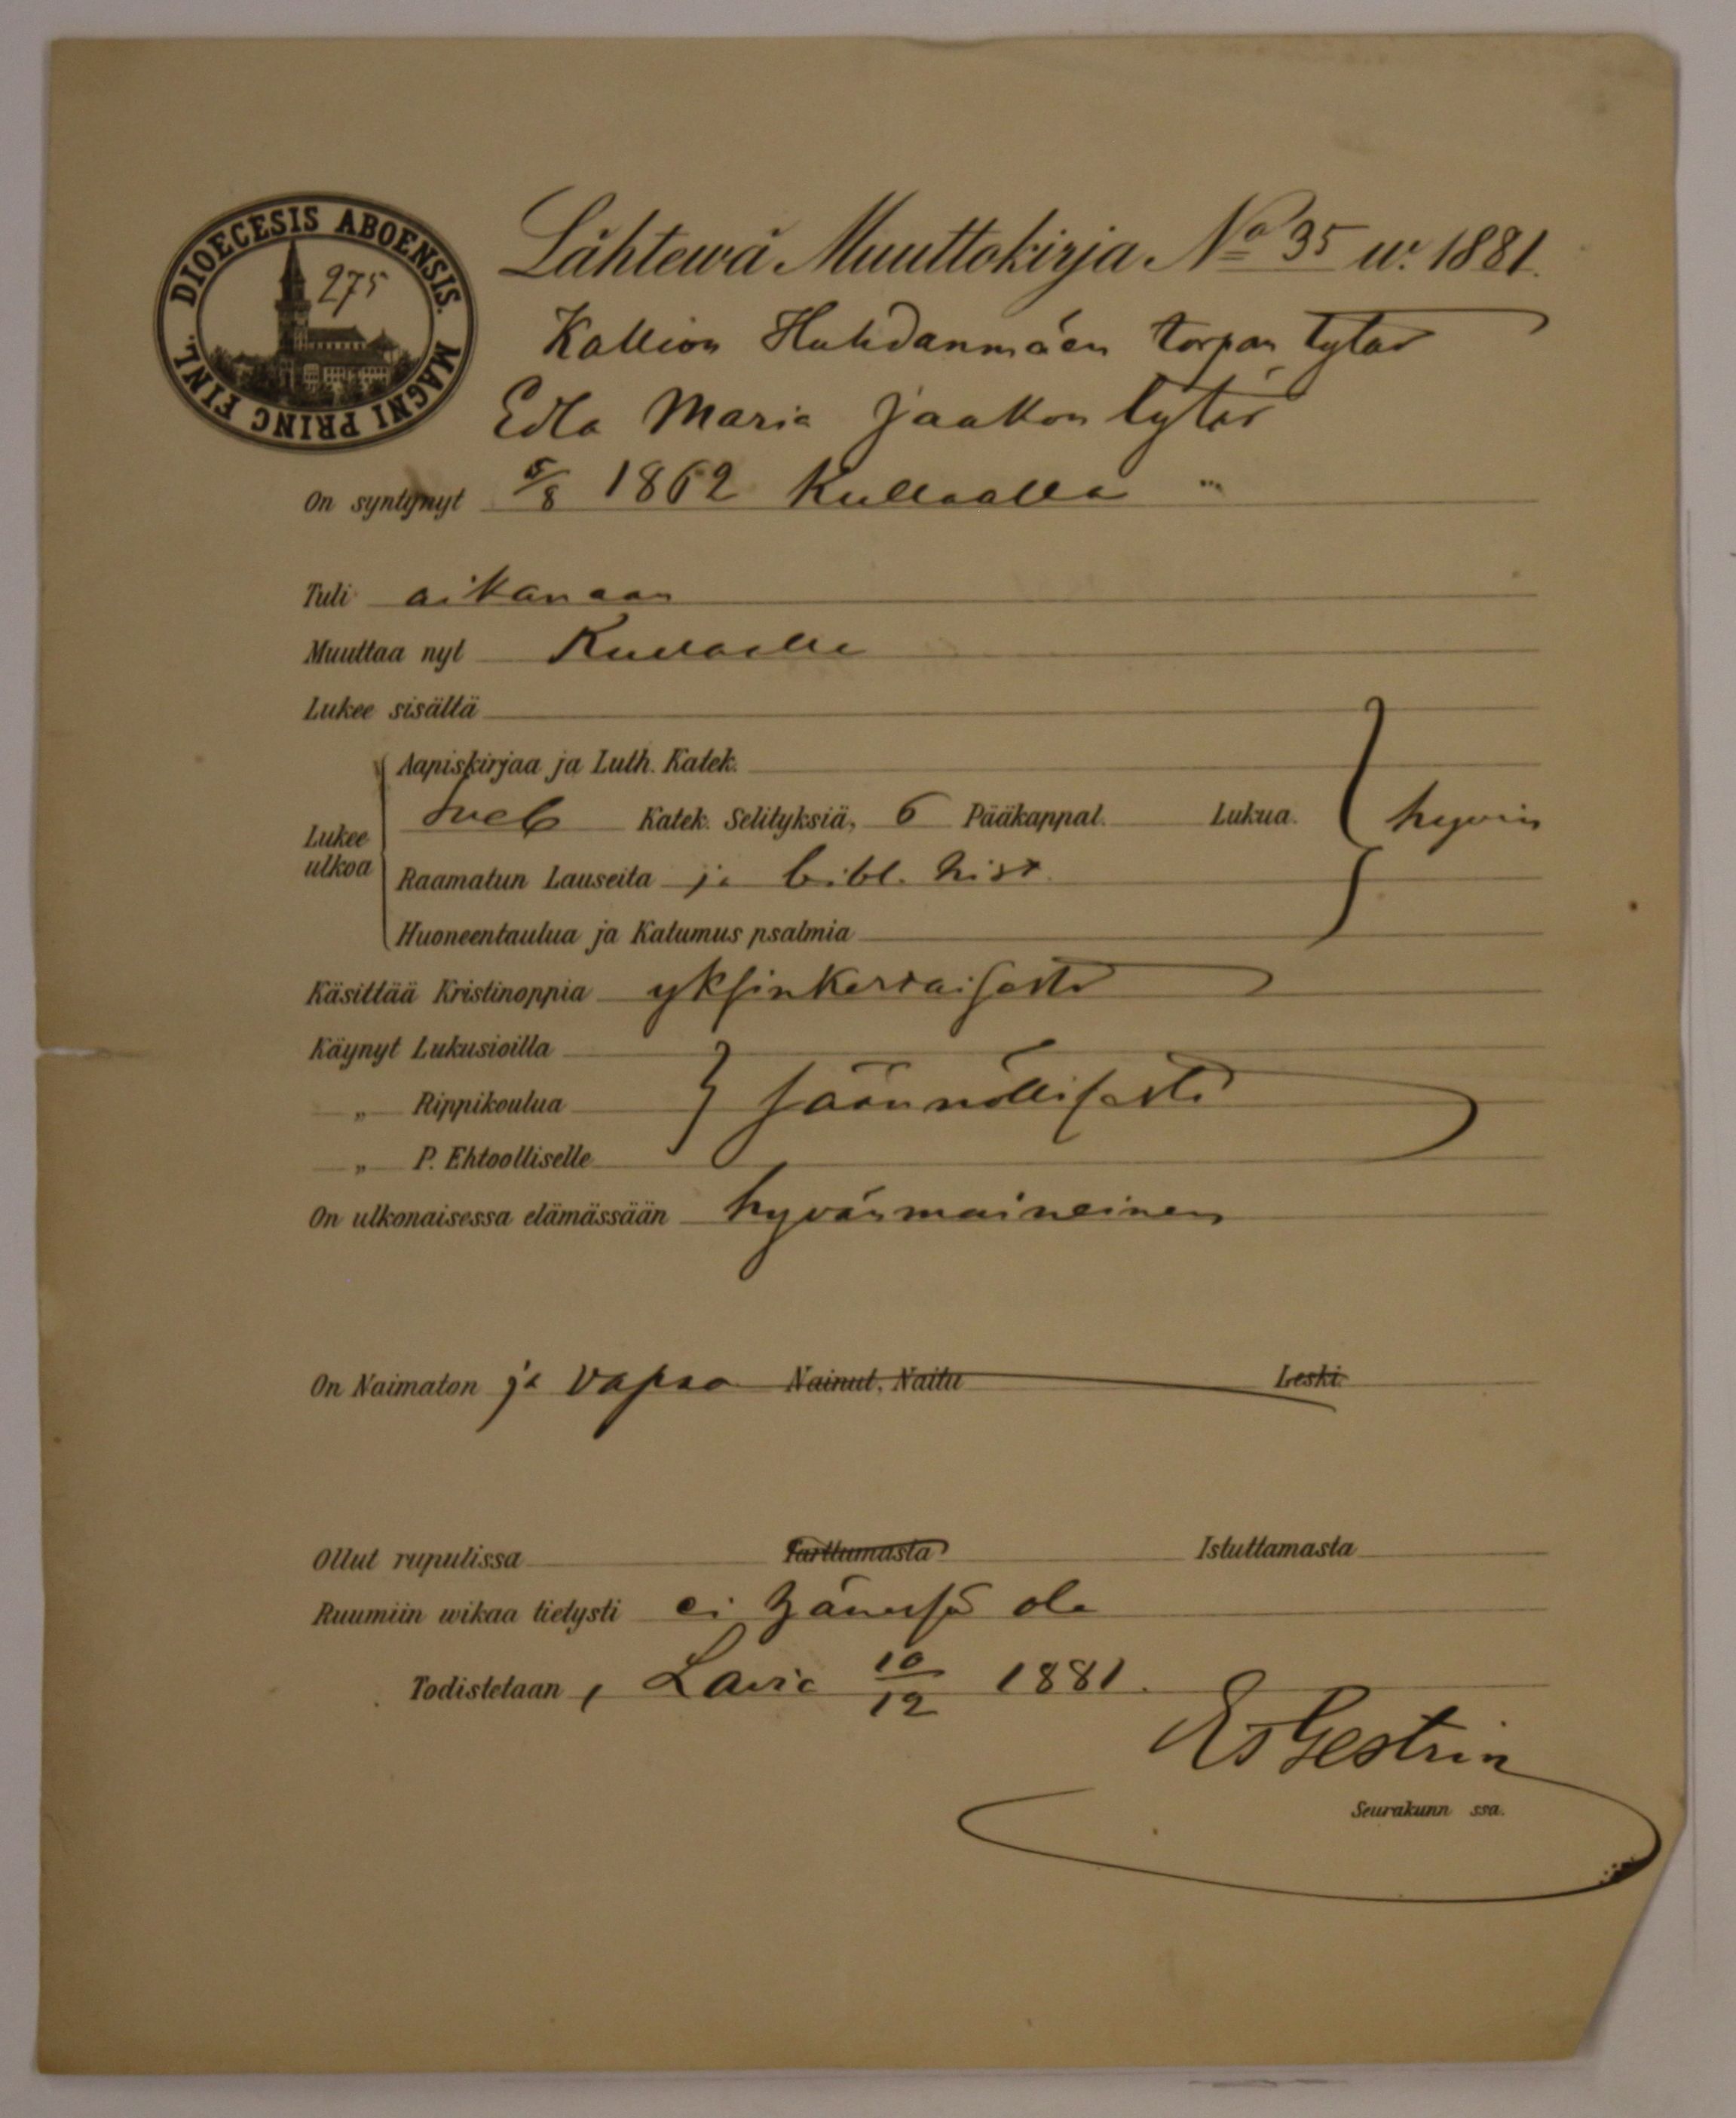 DIOECESIS ABOENSIS. MAGNI PRINC FINL.
275
Lähtewä Muuttokirja No 35 w. 1881.
Kallion Huhdanmäen torpan tytär
Edla Maria Jaakon tytär
On syntynyt 5/8 1862 Kullaalla "
Tuli aikanaan
Muuttaa nyt Kullaalle
Lukee sisältä
Aapiskirjaa ja Luth. Katek.
Lukee ulkoa Sveb Katek. Selityksiä, 6 Pääkappal. Lukua. hyvin
Raamatun Lauseita ja bibl. hist.
Huoneentaulua ja Katumus psalmia
Käsittää Kristinoppia yksinkertaisesti
Käynyt Lukusioilla
„ Rippikoulua säännöllisesti
„ P. Ehtoolliselle
On ulkonaisessa elämässään hyvänmaineinen
On Naimaton ja vapaa Nainut, Naitu Leski.
Ollut rupulissa Tarttumasta Istuttamasta
Ruumiin wikaa tietysti ei hänessä ole
Todistetaan, Lavia 10/12 1881.
Es Gestrin
Seurakunn ssa.